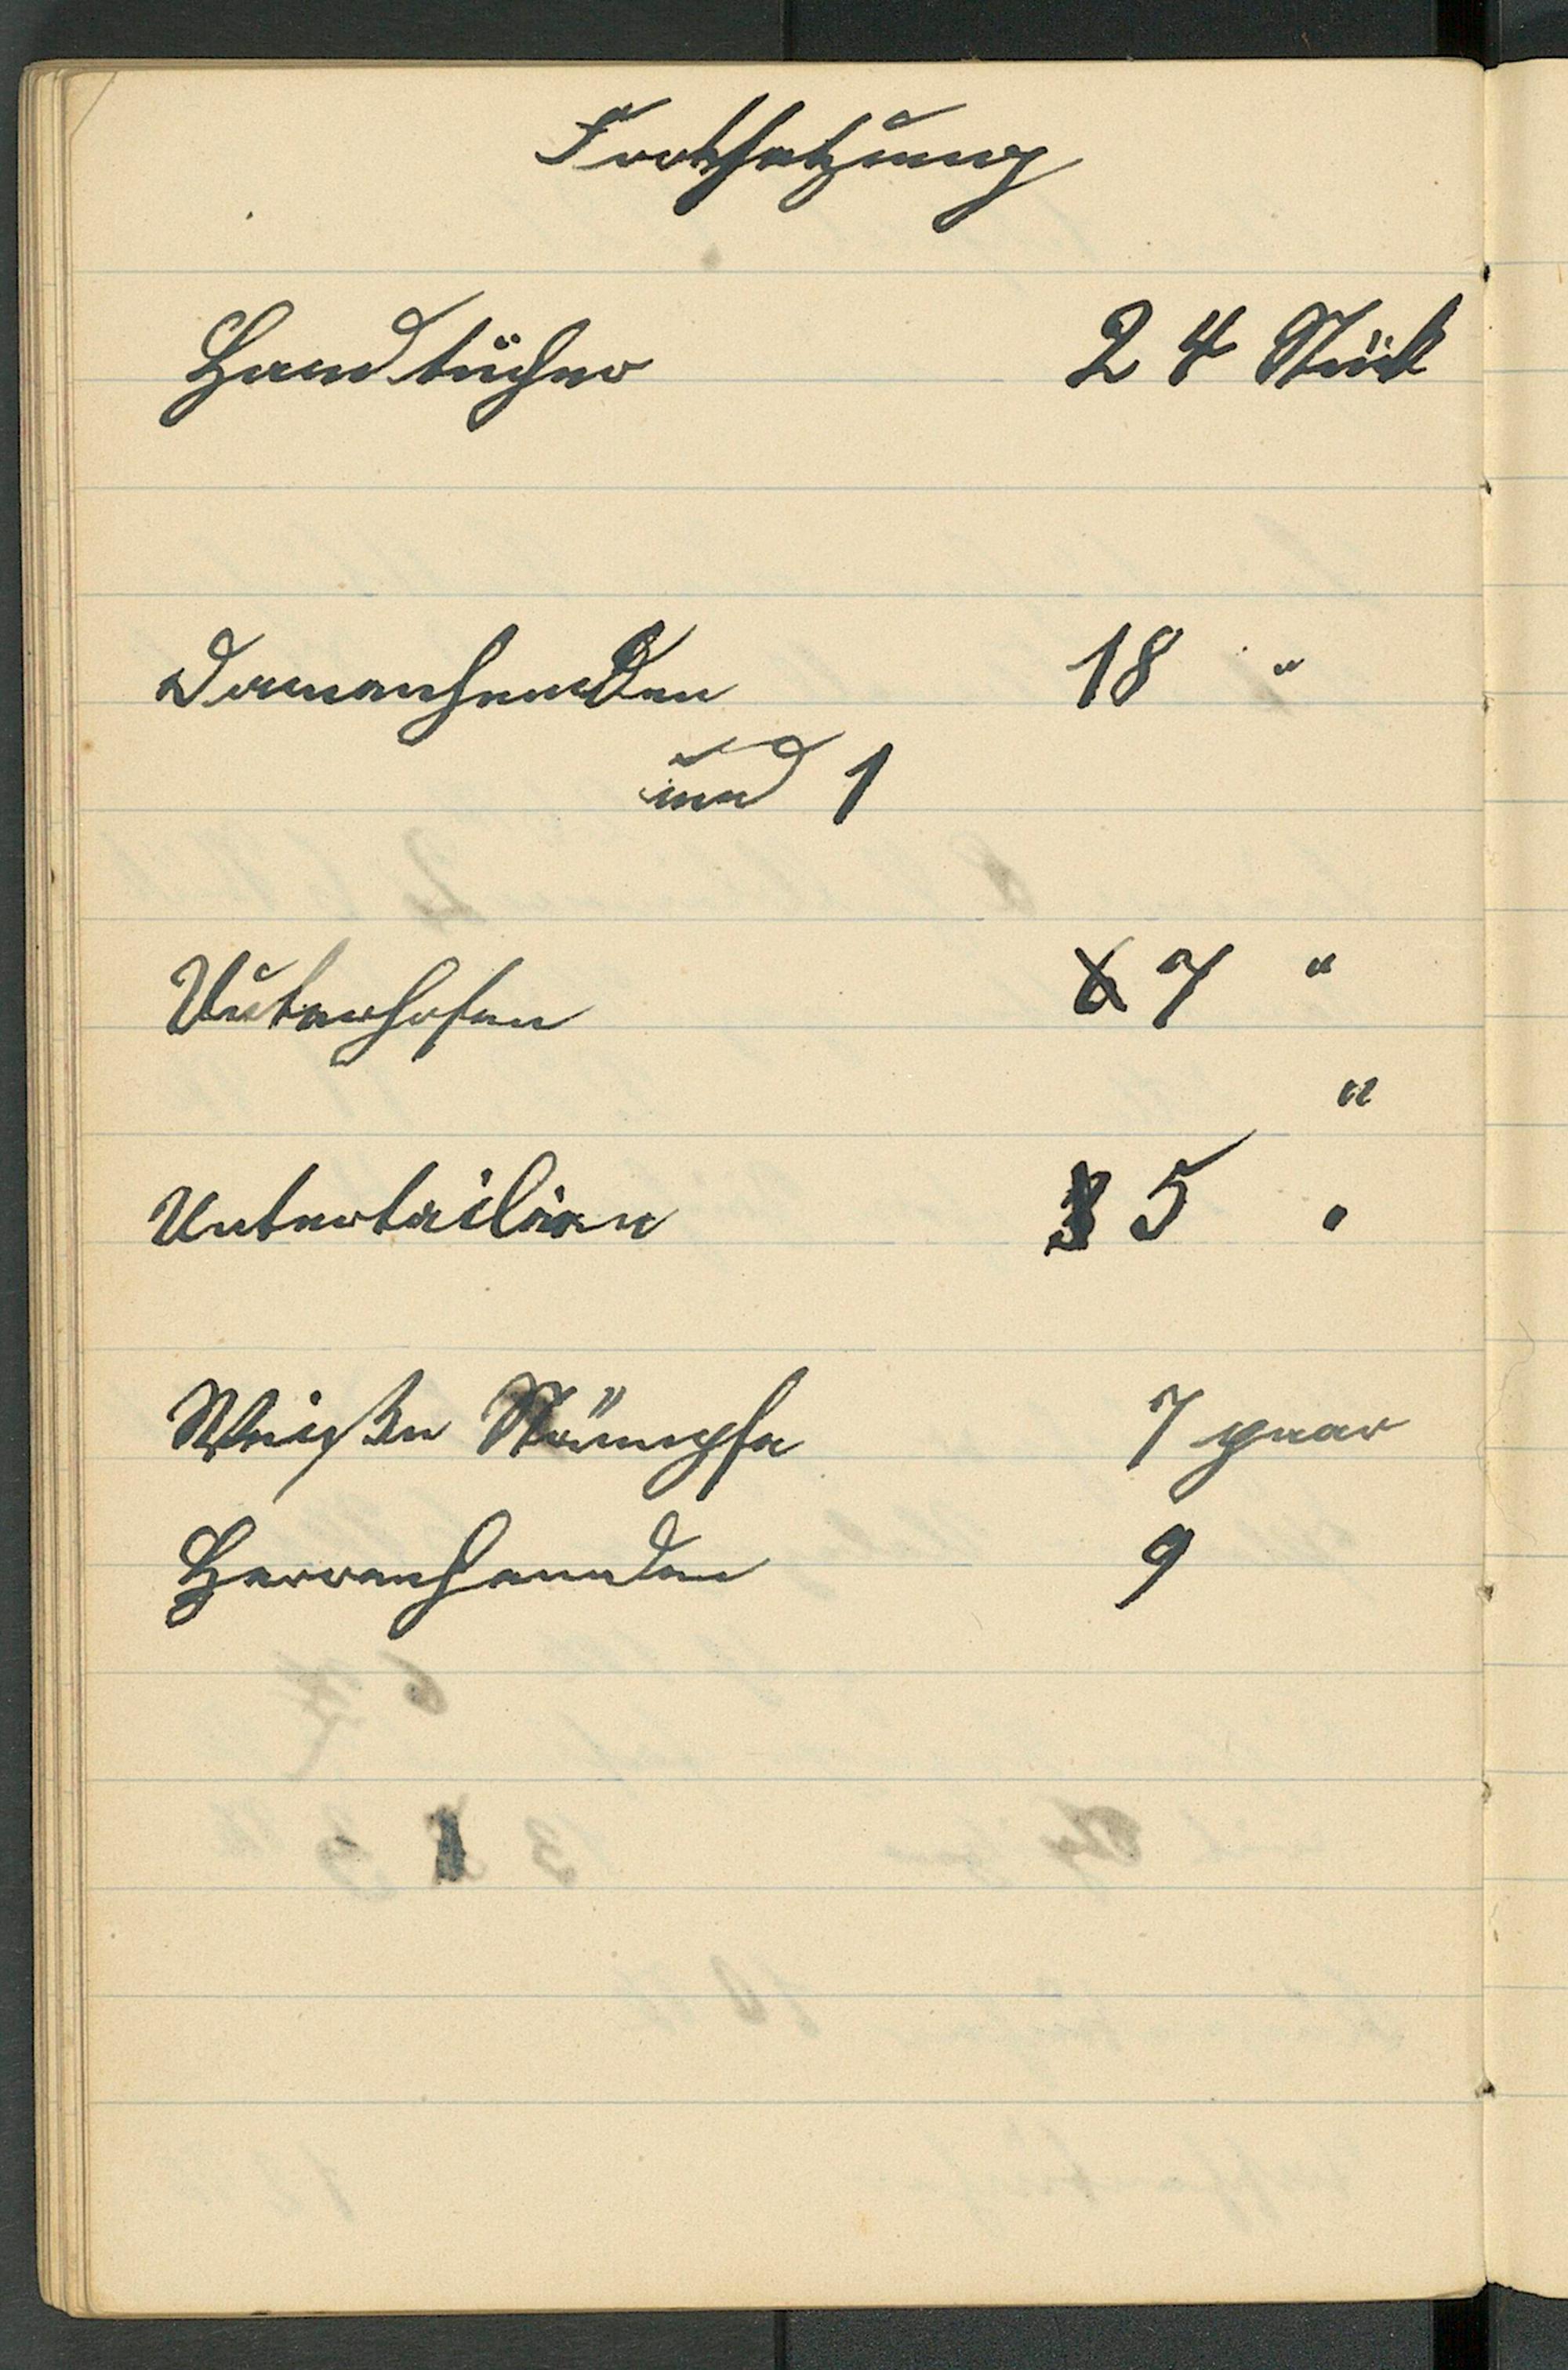 Fortsetzung
Handtücher 24 Stück
Damenhemden 18 "
und 1
Unterhosen 6 7 "
"
Untertailien 3 5 "
Weißen Strümpfe 7 paar
Herrenhemden 9